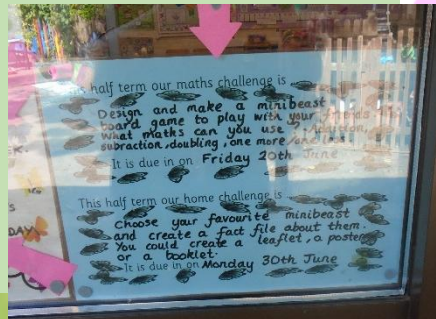 This half term our maths challenge is
Design and make a minibeast
board game to play with your friends
What maths can you use? Addition,
subraction, doubling, one more/one less
It is due in on Friday 20th June
This half term our home challenge is
Choose your favourite minibeast
and create a fact file about them.
You could create a leaflet, a poster
or a booklet.
It is due in on Monday 30th June
DAY